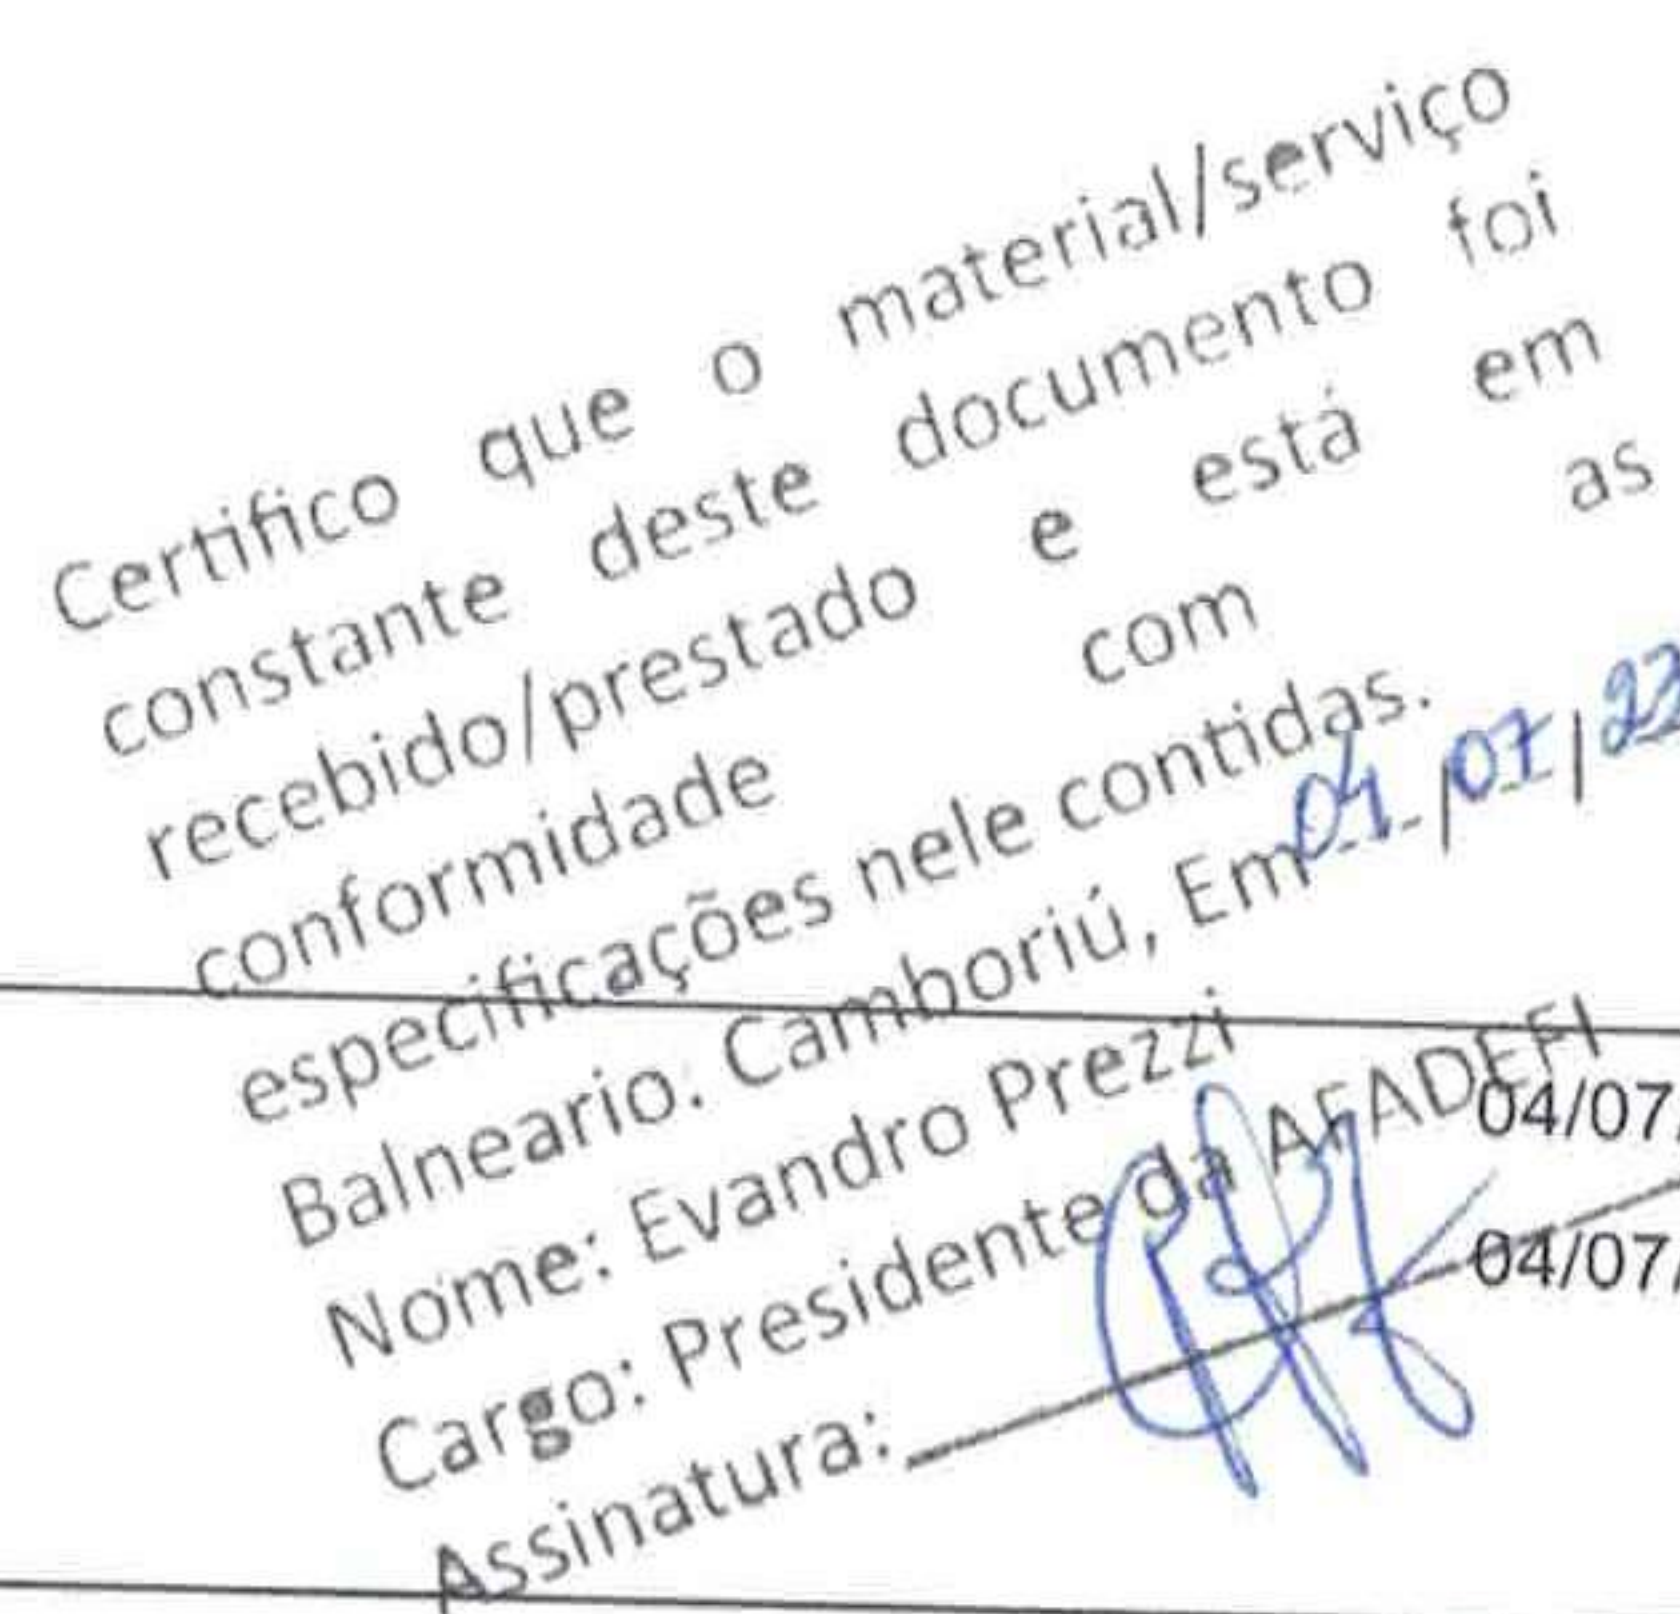 Certifico que o material/serviço
constante deste documento foi
recebido/prestado e está em
conformidade com as
especificações nele contidas.
Balneario. Camboriú, Em 04/07/23
Nome: Evandro Prezzi
Cargo: Presidente da AFADEFI
04/07/
Assinatura:
04/07/